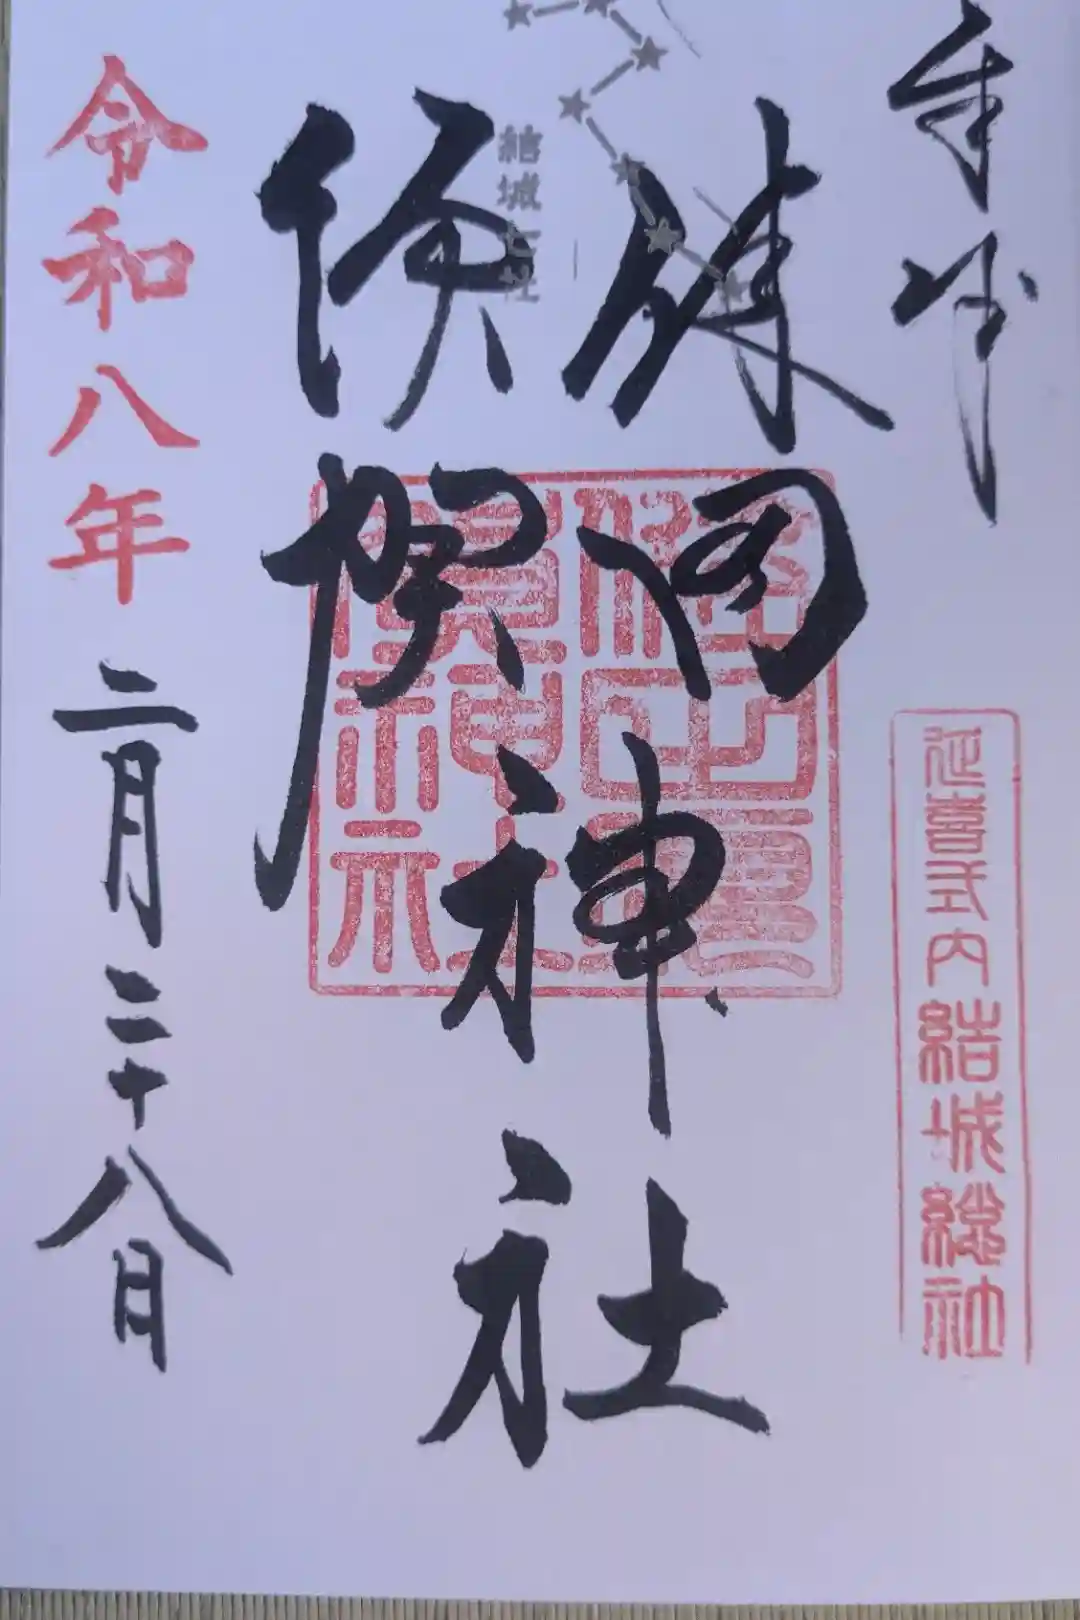 奉拝
延喜式内結城総社
結城七社
健田
須賀
神社
令和八年二月二十八日